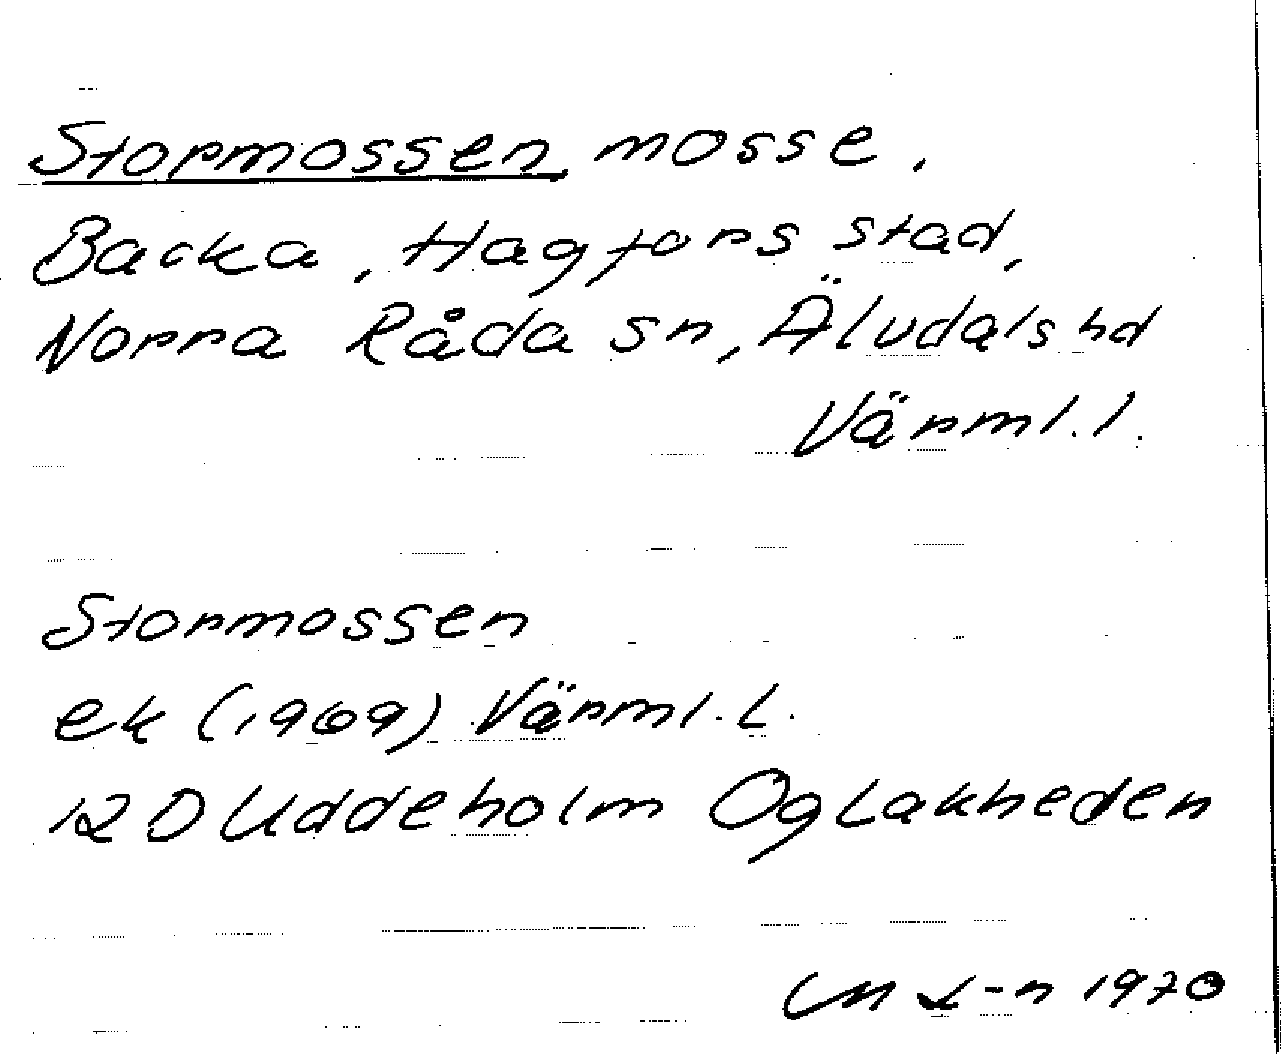 Stormossen, mosse.
Backa, Hagfors stad,
Norra Råda sn, Älvdals hd
Värml. l.
Stormossen
ek (1969) Värml. L.
12 D Uddeholm Og Lakheden
1970